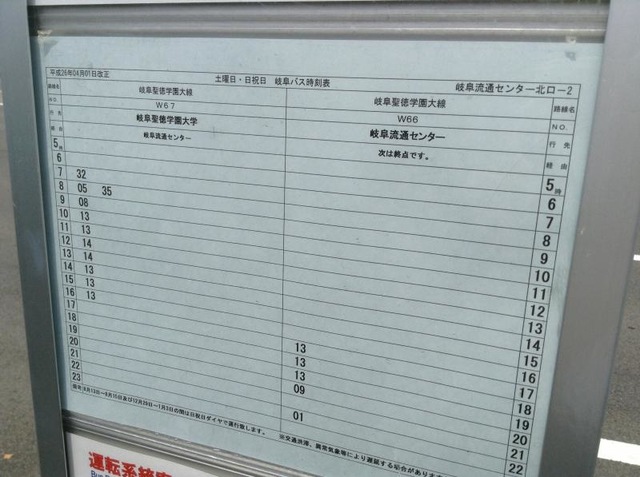 平成26年04月01日改正 土曜日・日祝日 岐阜バス時刻表 岐阜流通センター北口-2
路線名 岐阜聖徳学園大線 岐阜聖徳学園大線 路線名
NO. W67 W66 NO.
行先 岐阜聖徳学園大学 岐阜流通センター 行先
経由 岐阜流通センター 次は終点です。 経由
5時 5時
6 6
7 32 7
8 05 35 8
9 08 9
10 13 10
11 13 11
12 14 12
13 14 13
14 13 14
15 13 15
16 13 16
17 13 17
18 13 18
19 13 19
20 09 20
21 21
22 01 22
23
12月29日～1月3日の間は日祝日ダイヤで運行致します。
※交通渋滞、異常気象等により遅延する場合があります
運転系統